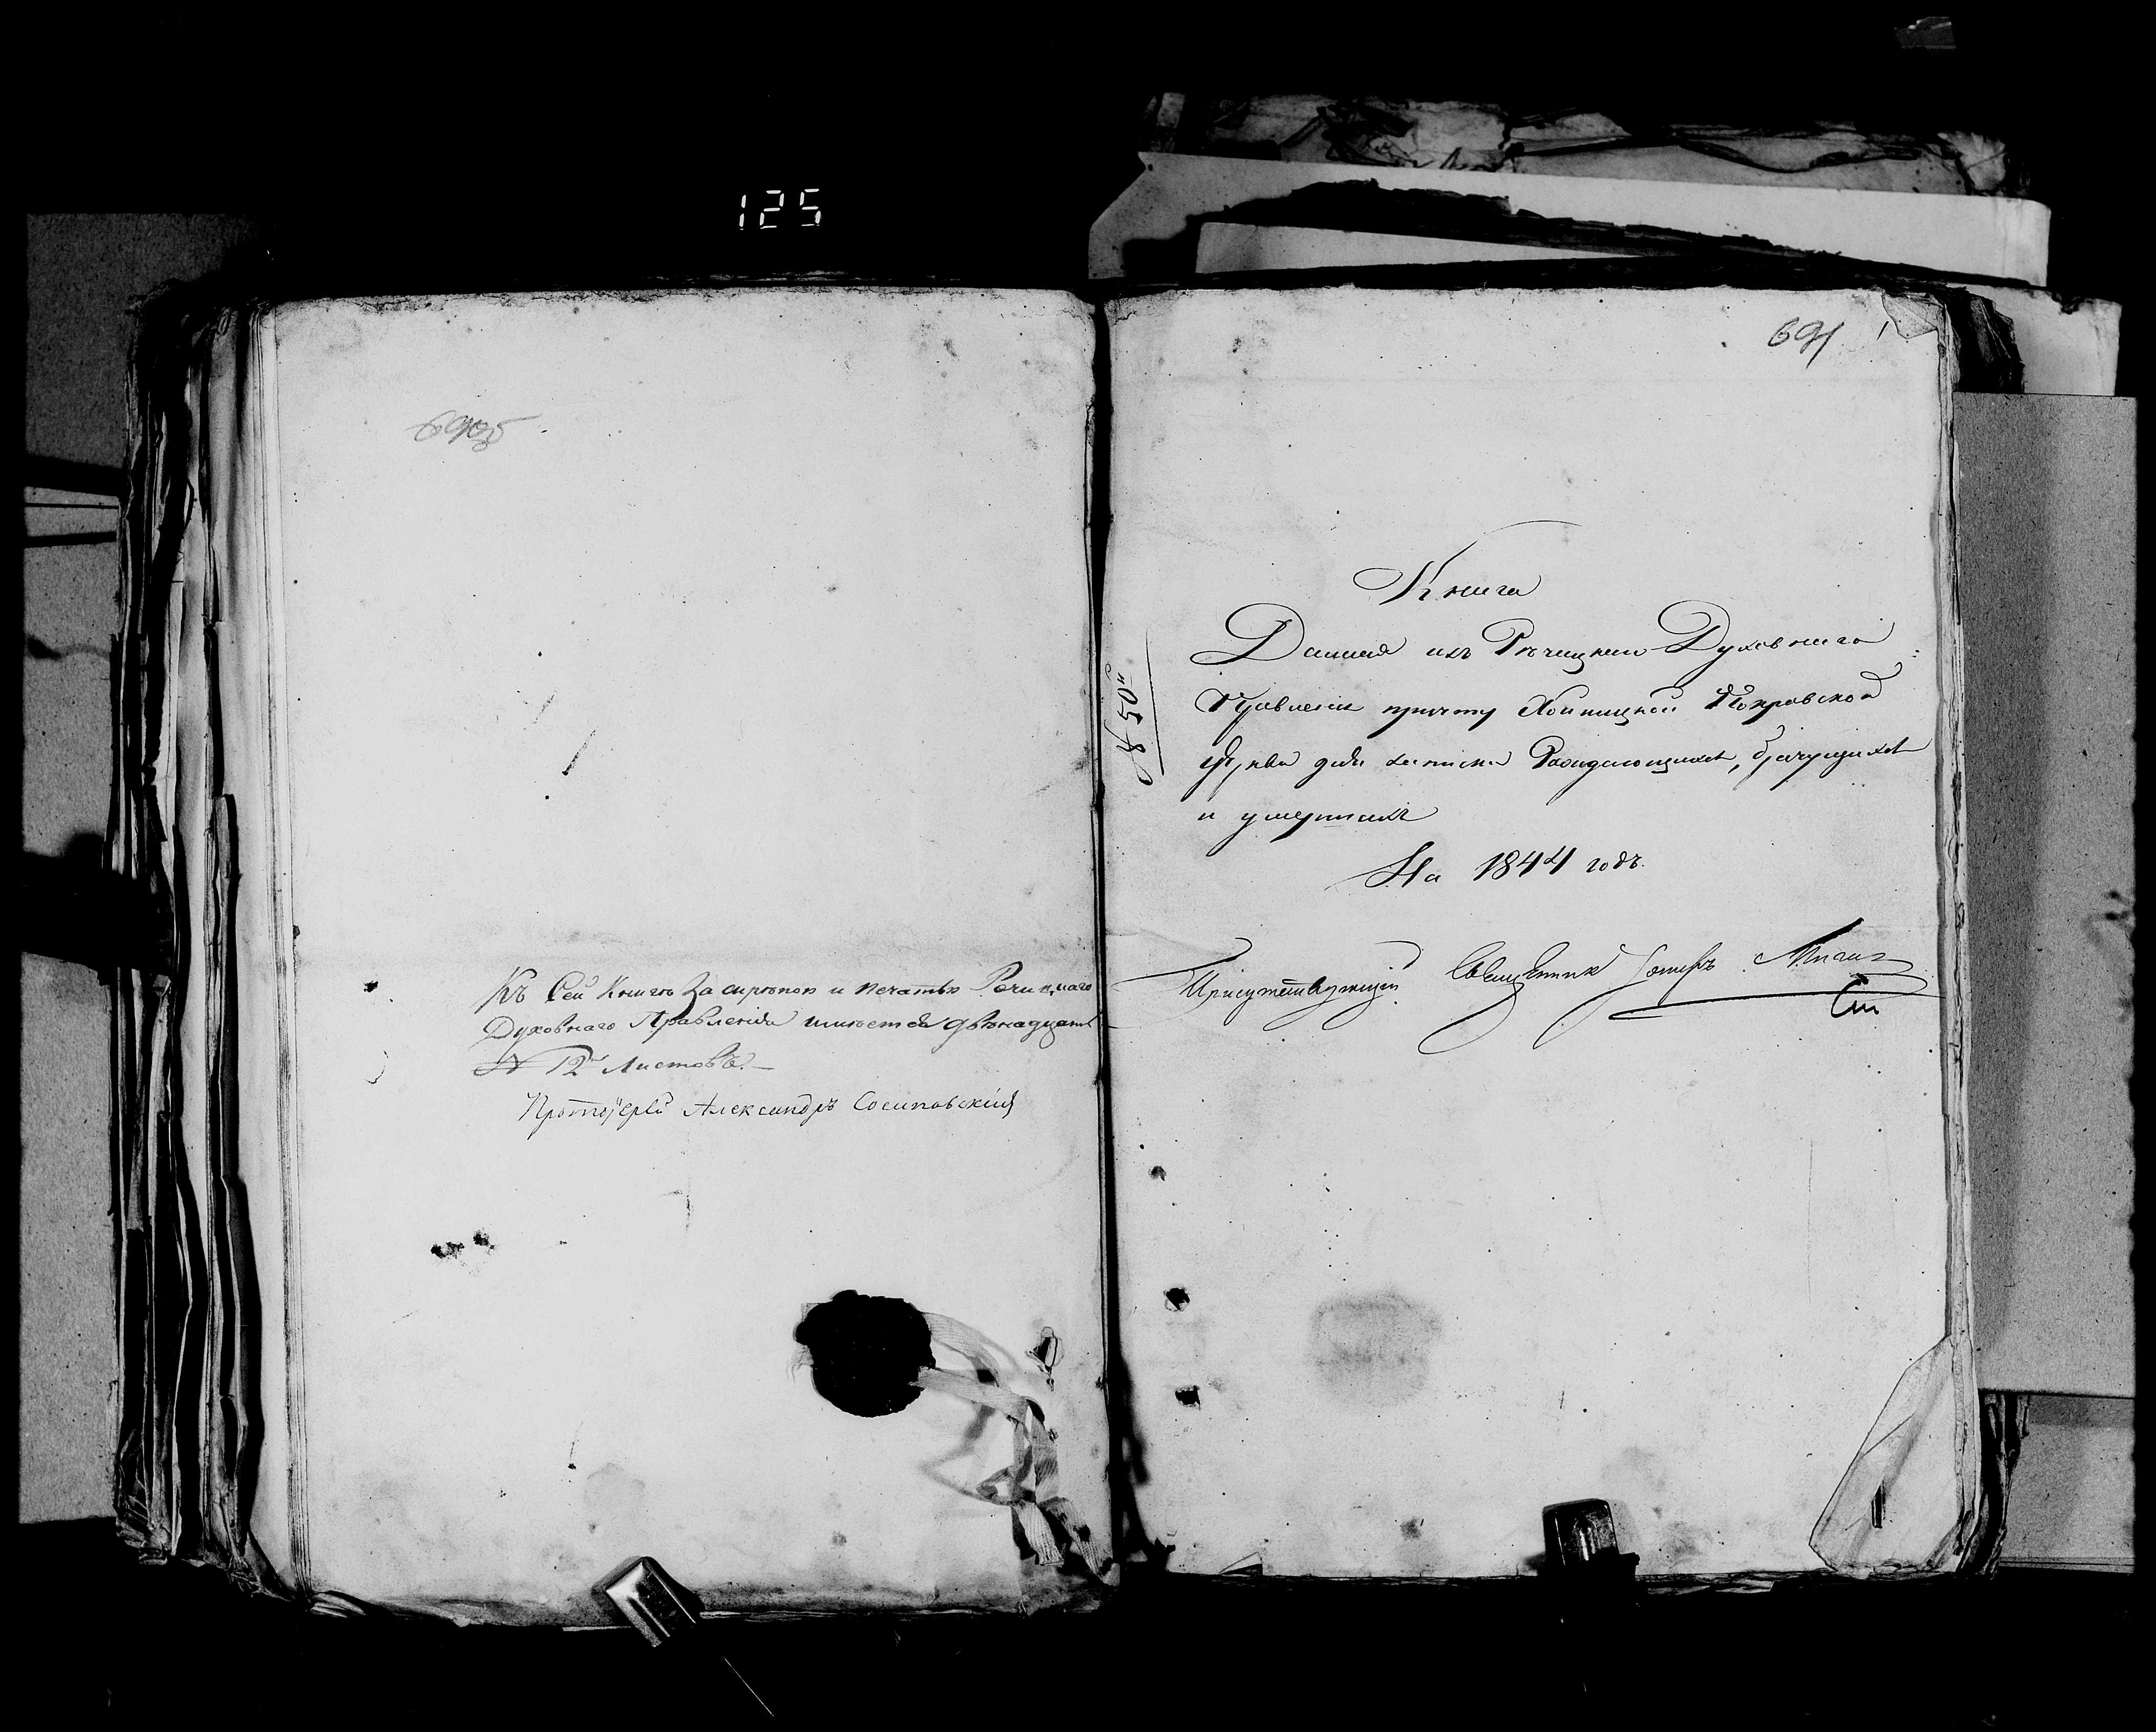 125
Къ Сей Книгѣ за скрѣпою и печатью Речицкаго
Духовнаго Правленія имѣется двѣнадцать
№ 12 листовъ.
Протоіерей Александръ Сосиновскій
691
№ 50й
Книга
Данная изъ Рѣчицкаго Духовнаго
Правленія причту Хойницкой Покровской
Церкви для записки Раждающихся, брачущихся
и умершихъ
На 1844 годъ.
Присутствующій Священник